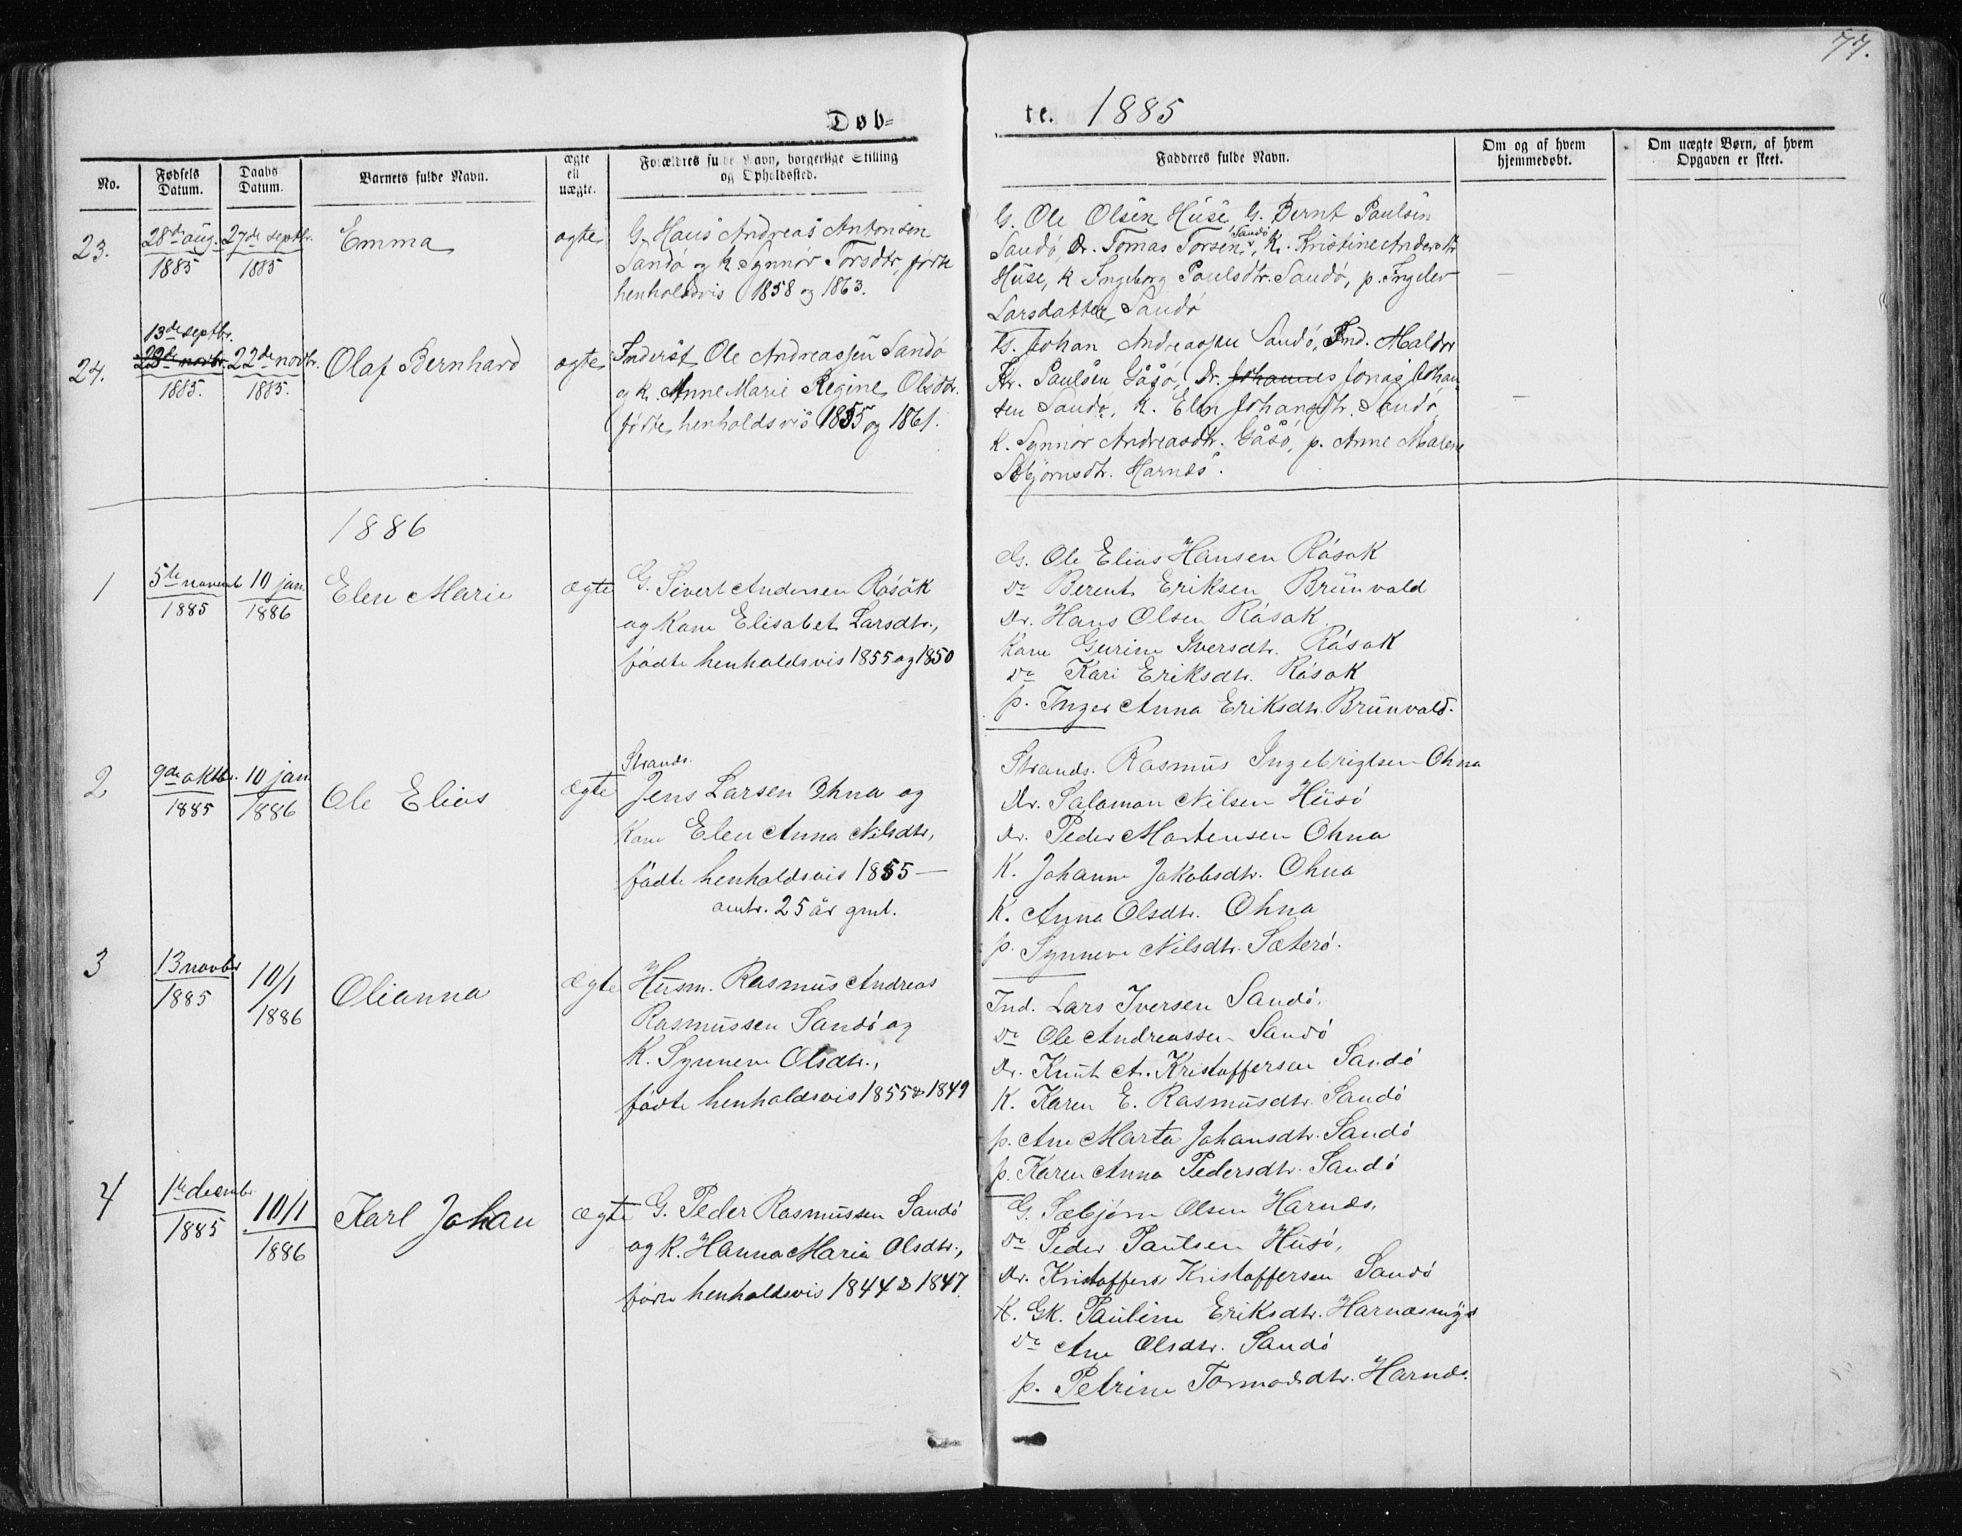 77.
Døb-
te. 1885
No.
Fødsels Datum.
Daabs Datum.
Barnets fulde Navn.
ægte ell uægte.
Forældres fulde Navn, borgerlige Stilling og Opholdssted.
Fadderes fulde Navn.
Om og af hvem hjemmedøbt.
Om uægte Børn, af hvem Opgaven er skeet.
23.
28de aug. 1885
27de septbr. 1885
Emma
ægte
G. Hans Andreas Antonsen
Sandö og K. Synnör Torsdtr, födte
henholdsvis 1858 og 1863.
G. Ole Olsen Huse, G. Bernt Paulsen
Sandö, Dr. Tomas Torsen Sandö, K. Kristine Andersdtr
Huse, K Ingeborg Paulsdtr. Sandö, p.
Larsdatter Sandö
24.
13de septbr.
22de novbr. 1885.
22de novbr. 1885.
Olaf Bernhard
ægte
Inderst Ole Andreassen Sandö
og K. Anne Marie Regine Olsdtr.
födte henholdsvis 1855 og 1861.
G. Johan Andreassen Sandö, Ind. Haldor
Kr. Paulsen Gåsö, Dr. Johannes Jonas Johan-
sen Sandö, K. Elen Johansdtr. Sandö,
K. Synnör Andreasdtr. Gåsö, p. Anne Malene
Sæbjörnsdtr. Harnæs.
1886
1
5te novemb 1885
10 jan. 1886
Elen Marie
ægte
G. Sivert Andersen Rösok
og Kone Elisabet Larsdtr.,
fødte henholdsvis 1855 og 1850
G. Ole Elias Hansen Rösok
Do Berent Eriksen Brunvald
Dr. Hans Olsen Rösok
Kone Gurine Iversdtr. Rösok
Do Kari Eriksdtr. Rösok
p. Inger Anna Eriksdtr. Brunvald.
2
9de oktb. 1885
10 jan. 1886
Ole Elias
ægte
Strands.
Jens Larsen Ohna og
Kone Elen Anna Nilsdtr,
fødte henholdsvis 1855 —
omtr. 25 år gml.
Strands. Rasmus Ingebrigtsen Ohna
Dr. Salamon Nilsen Husö
Dr. Peder Mortensen Ohna
K. Johanne Jakobsdtr. Ohna
K. Anna Olsdtr. Ohna
p. Synneve Nilsdtr. Sæterö.
3
13 novbr 1885
10/1 1886
Olianna
ægte
Husm. Rasmus Andreas
Rasmussen Sandö og
K. Synneve Olsdtr.,
fødte henholdsvis 1855 & 1849
Ind. Lars Iversen Sandö.
Do Ole Andreassen Sandö
Dr. Knut A. Kristoffersen Sandö
K. Karen E. Rasmusdtr. Sandö
p. Ane Marta Johansdtr. Sandö
p. Karen Anna Pedersdtr. Sandö
4
1te decembr 1885
10/1 1886
Karl Johan
ægte
G. Peder Rasmussen Sandö
og K. Hanna Maria Olsdtr.,
födte henholdsvis 1844 & 1847.
G. Sæbjörn Olsen Harnæs,
Do Peder Paulsen Husö,
Dr. Kristoffer Kristoffersen Sandö
K. Gk. Pauline Eriksdtr. Harnæsmyr
Do Ane Olsdtr. Sandö
p. Petrine Tormodsdtr. Harnæs.